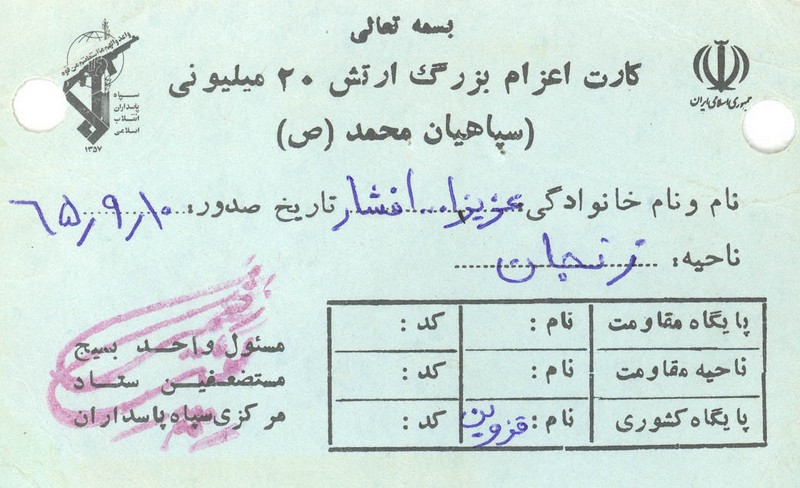 بسمه تعالی
کارت اعزام بزرگ ارتش ۲۰ میلیونی
(سپاهیان محمد (ص)
جمهوری اسلامی ایران
سپاه
پاسداران
انقلاب
اسلامی
۱۳۵۷
نام و نام خانوادگی: عزیزا... افشار تاریخ صدور: ۶۵/۹/۱۰
ناحیه: زنجان
پایگاه مقاومت نام: کد:
ناحیه مقاومت نام: کد:
پایگاه کشوری نام: قزوین کد:
مسئول واحد بسیج
مستضعفین ستاد
مرکزی سپاه پاسداران